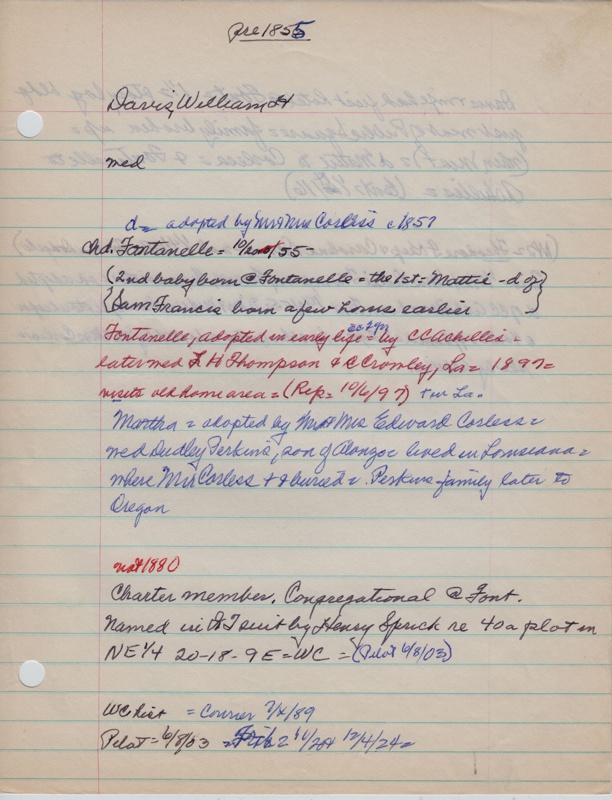 pre 1855
Davis, William
med
d= adopted by Mr & Mrs Corless c 1857
chd. Fontanelle = 10/ /55-
(2nd baby born @ Fontanelle = the 1st = Mattie - d of)
{Sam Francis born a few hours earlier}
Fontanelle, adopted in early life = by CC Achilles =
later med L H Thompson & Crowley, La = 1897=
visits old home area = (Rep = 10/6/97) La.
Martha = adopted by Mr & Mrs Edward Corless =
wed Dudley Perkins, son of Alonzo = lived in Louisiana =
where Mrs Corless & buried = Perkins family later to
Oregon
not 1880
Charter member, Congregational @ Font.
Named in suit by Henry Sprick re 40a plot in
NE 1/4 20-18-9E = WC = (Pilot 6/8/03)
WC Hist = Courier 7/4/89
Pilot = 6/8/03 = 12/4/24=